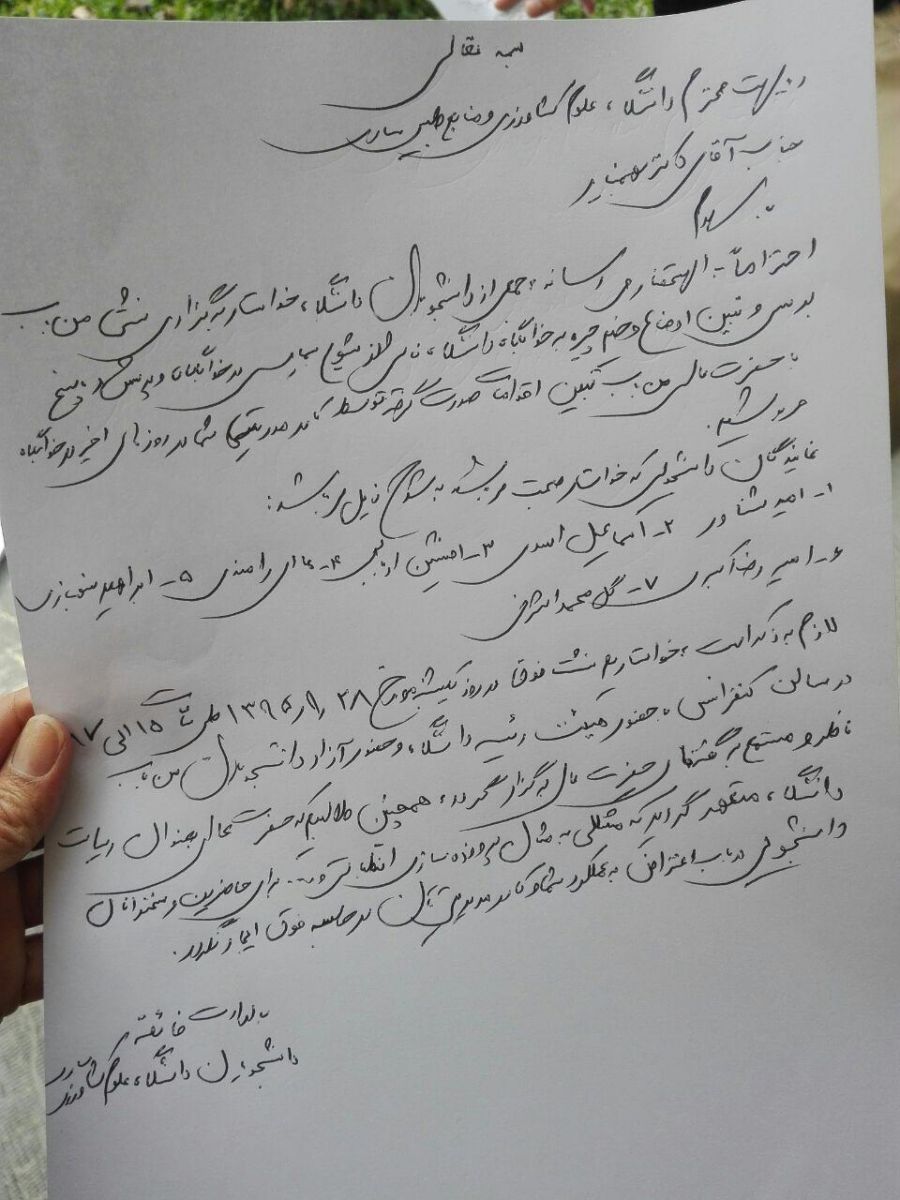 بسمه تعالی
ریاست محترم دانشگاه علوم کشاورزی و منابع طبیعی ساری
جناب آقای دکتر بهمنیار
با سلام
احتراماً به استحضار می رساند، جمعی از دانشجویان دانشگاه، خواستار برگزاری نشستی من باب
بررسی و تبیین اوضاع وخیم چیره به خوابگاه دانشگاه، ناشی از شیوع بیماری در خوابگاه و پرسش و پاسخ
با حضرت عالی من باب تبیین اقدامات صورت گرفته توسط کادر مدیریتی شما در روزهای اخیر در خوابگاه
می باشیم.
نمایندگان دانشجویی که خواستار صحبت می باشند به شرح ذیل می باشد:
۱- امید شناور ۲- اسماعیل اسدی ۳- افشین ۴- رامندی ۵- ابراهیم
۶- امیررضا اکبری ۷- گل محمد اشرفی
لازم به ذکر است، خواستاریم نشست فوق در روز یکشنبه مورخ ۱۳۹۵/۹/۲۸ طی ساعت ۱۵ الی ۱۷
در سالن کنفرانس، حضور هیئت رئیسه دانشگاه، و حضور آزاد دانشجویان من باب
ناظر و مستمع به گفته های حضرت عالی برگزار گردد، همچنین طالبیم که حضرت عالی ریاست
دانشگاه، متعهد گردید که مشکلی به مثال پرونده سازی انضباطی و ... برای حاضرین و سخنرانان
دانشجویی در باب اعتراض به عملکرد شما و کادر مدیریتیتان در جلسه فوق ایجاد نگردد.
با ارادت فائقه
دانشجویان دانشگاه علوم کشاورزی ساری